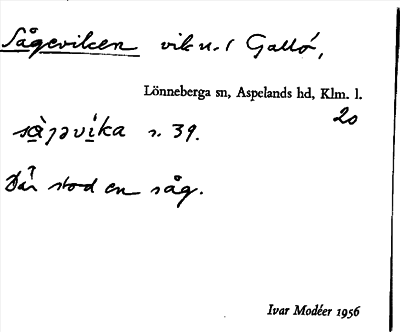 Sågeviken vik n. i Gallö,
Lönneberga sn, Aspelands hd, Klm. l.
20
sàgəvíka s. 39.
Där stod en såg.
Ivar Modéer 1956